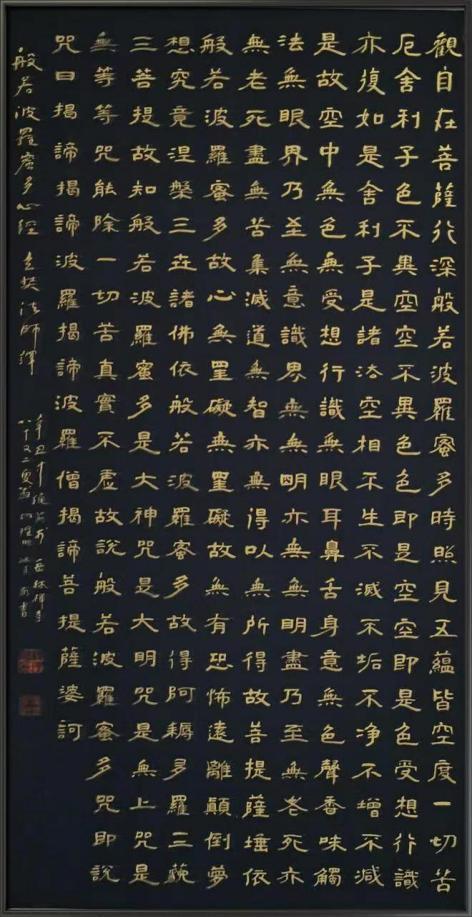 觀自在菩薩行深般若波羅蜜多時照見五蘊皆空度一切苦
厄舍利子色不異空空不異色色即是空空即是色受想行識
亦復如是舍利子是諸法空相不生不滅不垢不净不增不減
是故空中無色無受想行識無眼耳鼻舌身意無色聲香味觸
法無眼界乃至無意識界無無明亦無無明盡乃至無老死亦
無老死盡無苦集滅道無智亦無得以無所得故菩提薩埵依
般若波羅蜜多故心無罣礙無罣礙故無有恐怖遠離顛倒夢
想究竟涅槃三世諸佛依般若波羅蜜多故得阿耨多羅三藐
三菩提故知般若波羅蜜多是大神咒是大明咒是無上咒是
無等等咒能除一切苦真實不虛故說般若波羅蜜多咒即說
咒曰揭諦揭諦波羅揭諦波羅僧揭諦菩提薩婆訶
般若波羅蜜多心經 玄奘法師譯
辛丑年
書